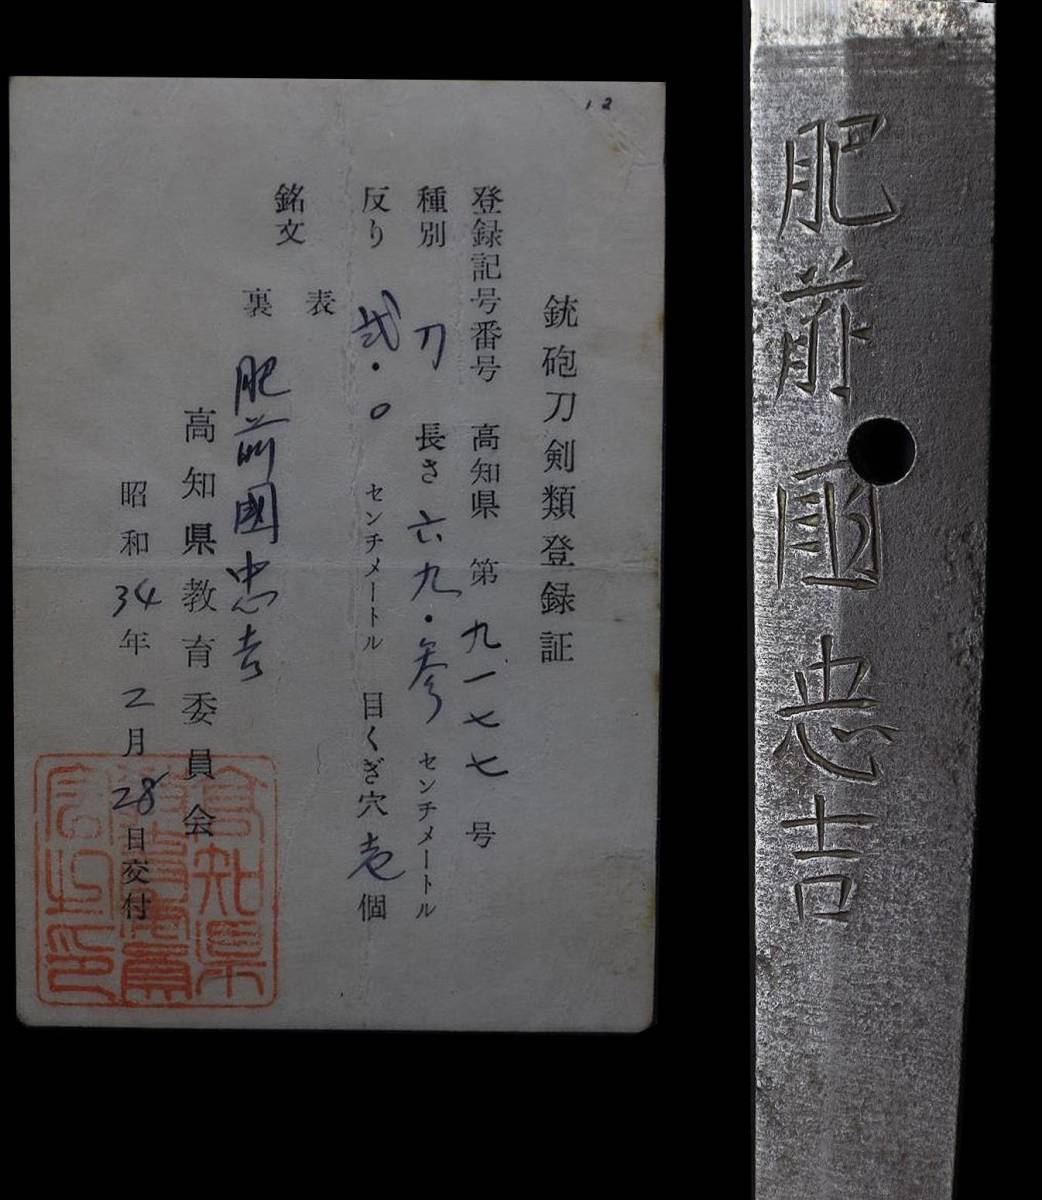 12
銃砲刀剣類登録証
登録記号番号 高知県 第九一七七号
種別 刀 長さ 六九・参 センチメートル
反り 弐・〇 センチメートル 目くぎ穴 壱個
銘文 表
裏 肥前國忠吉
高知県教育委員会
昭和34年2月28日交付
肥前國忠吉